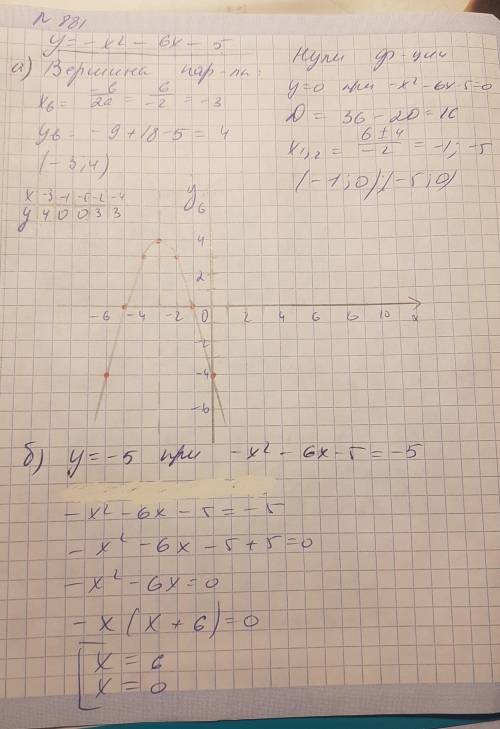 № 881
y = -x² - 6x - 5
а) Вершина пар-лы:
xв = -6/2a = 6/-2 = -3
yв = -9 + 18 - 5 = 4
(-3, 4)
x -3 -1 -5 -2 -4
y 4 0 0 3 3
Нули ф-ции
y=0 при -x² - 6x - 5 = 0
D = 36 - 20 = 16
x₁,₂ = 6 ± 4 / -2 = -1; -5
(-1; 0); (-5; 0)
y
6
4
2
-6 -4 -2 0 2 4 6 8 10 x
-2
-4
-6
б) y = -5 при -x² - 6x - 5 = -5
-x² - 6x - 5 = -5
-x² - 6x - 5 + 5 = 0
-x² - 6x = 0
-x(x + 6) = 0
[x = 6
x = 0